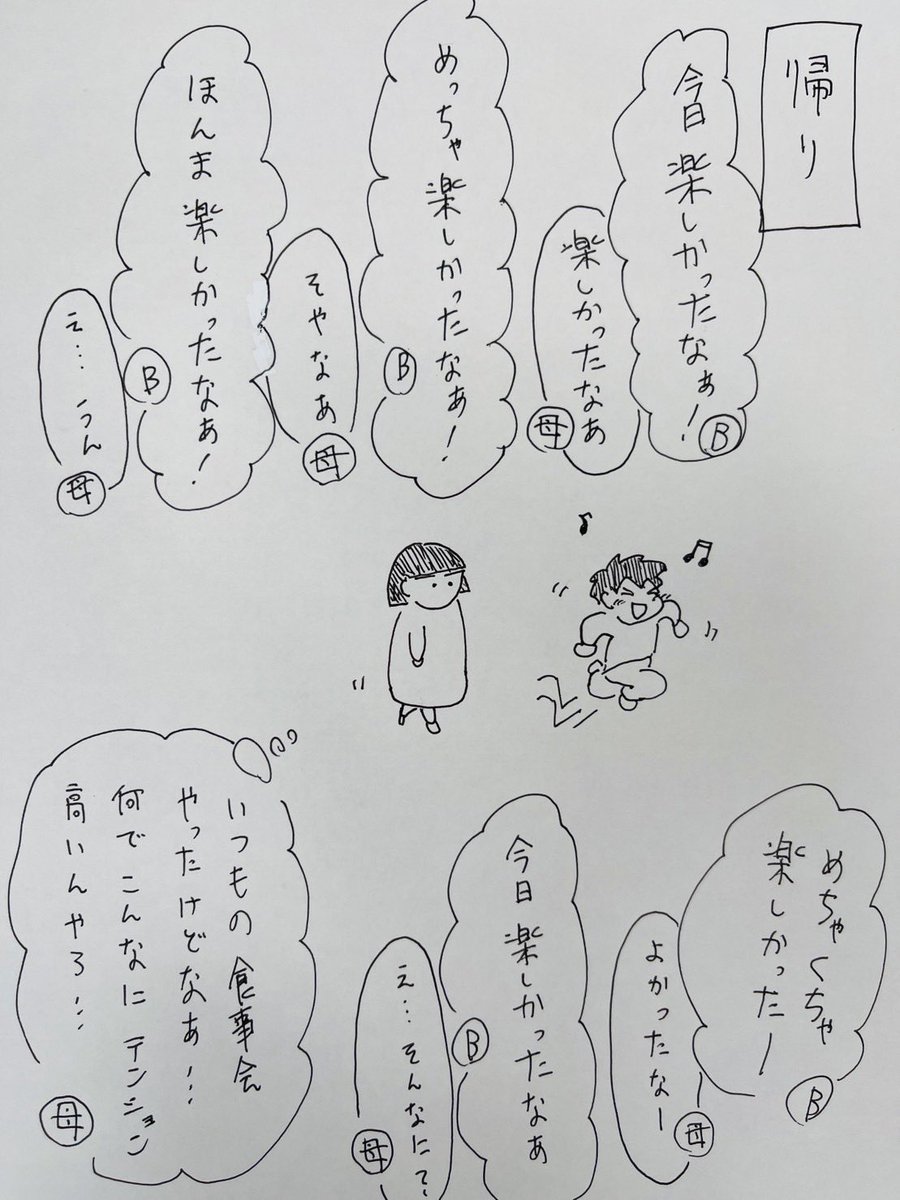 帰り
今日楽しかったなぁ!
B
楽しかったなあ
母
めっちゃ楽しかったなぁ!
B
そやなあ
母
ほんま楽しかったなぁ!
B
え…うん
母
めちゃくちゃ
楽しかったー
B
よかったなー
母
今日楽しかったなぁ
B
え…そんなにて
母
いつもの食事会
やったけどなぁ…
何でこんなにテンション
高いんやろ…
母